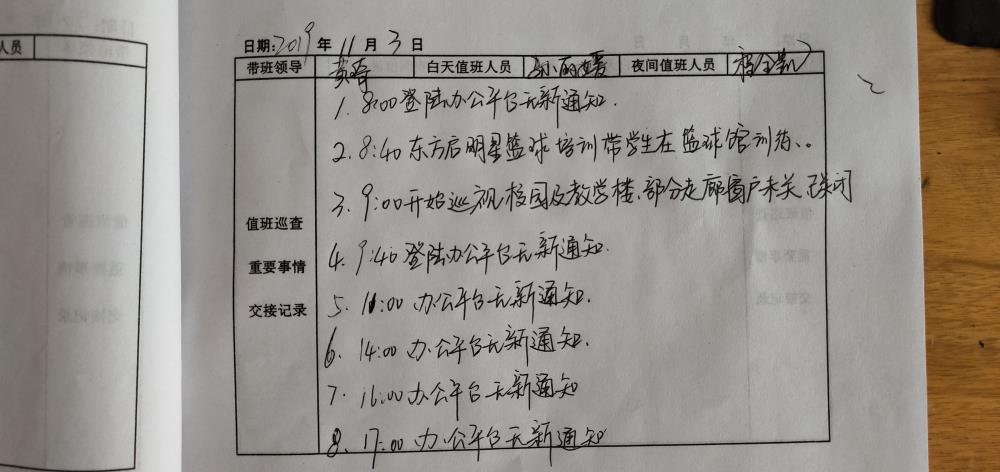 人员
日期:2019年11月3日
带班领导 黄涛 白天值班人员 孙丽媛 夜间值班人员
值班巡查
重要事情
交接记录
1. 8:00登陆办公平台无新通知.
2. 8:40东方启明星篮球培训带学生在篮球馆训练..
3. 9:00开始巡视校园及教学楼、部分走廊窗户未关、已关闭
4. 9:40登陆办公平台无新通知.
5. 11:00办公平台无新通知.
6. 14:00办公平台无新通知.
7. 16:00办公平台无新通知
8. 17:00办公平台无新通知